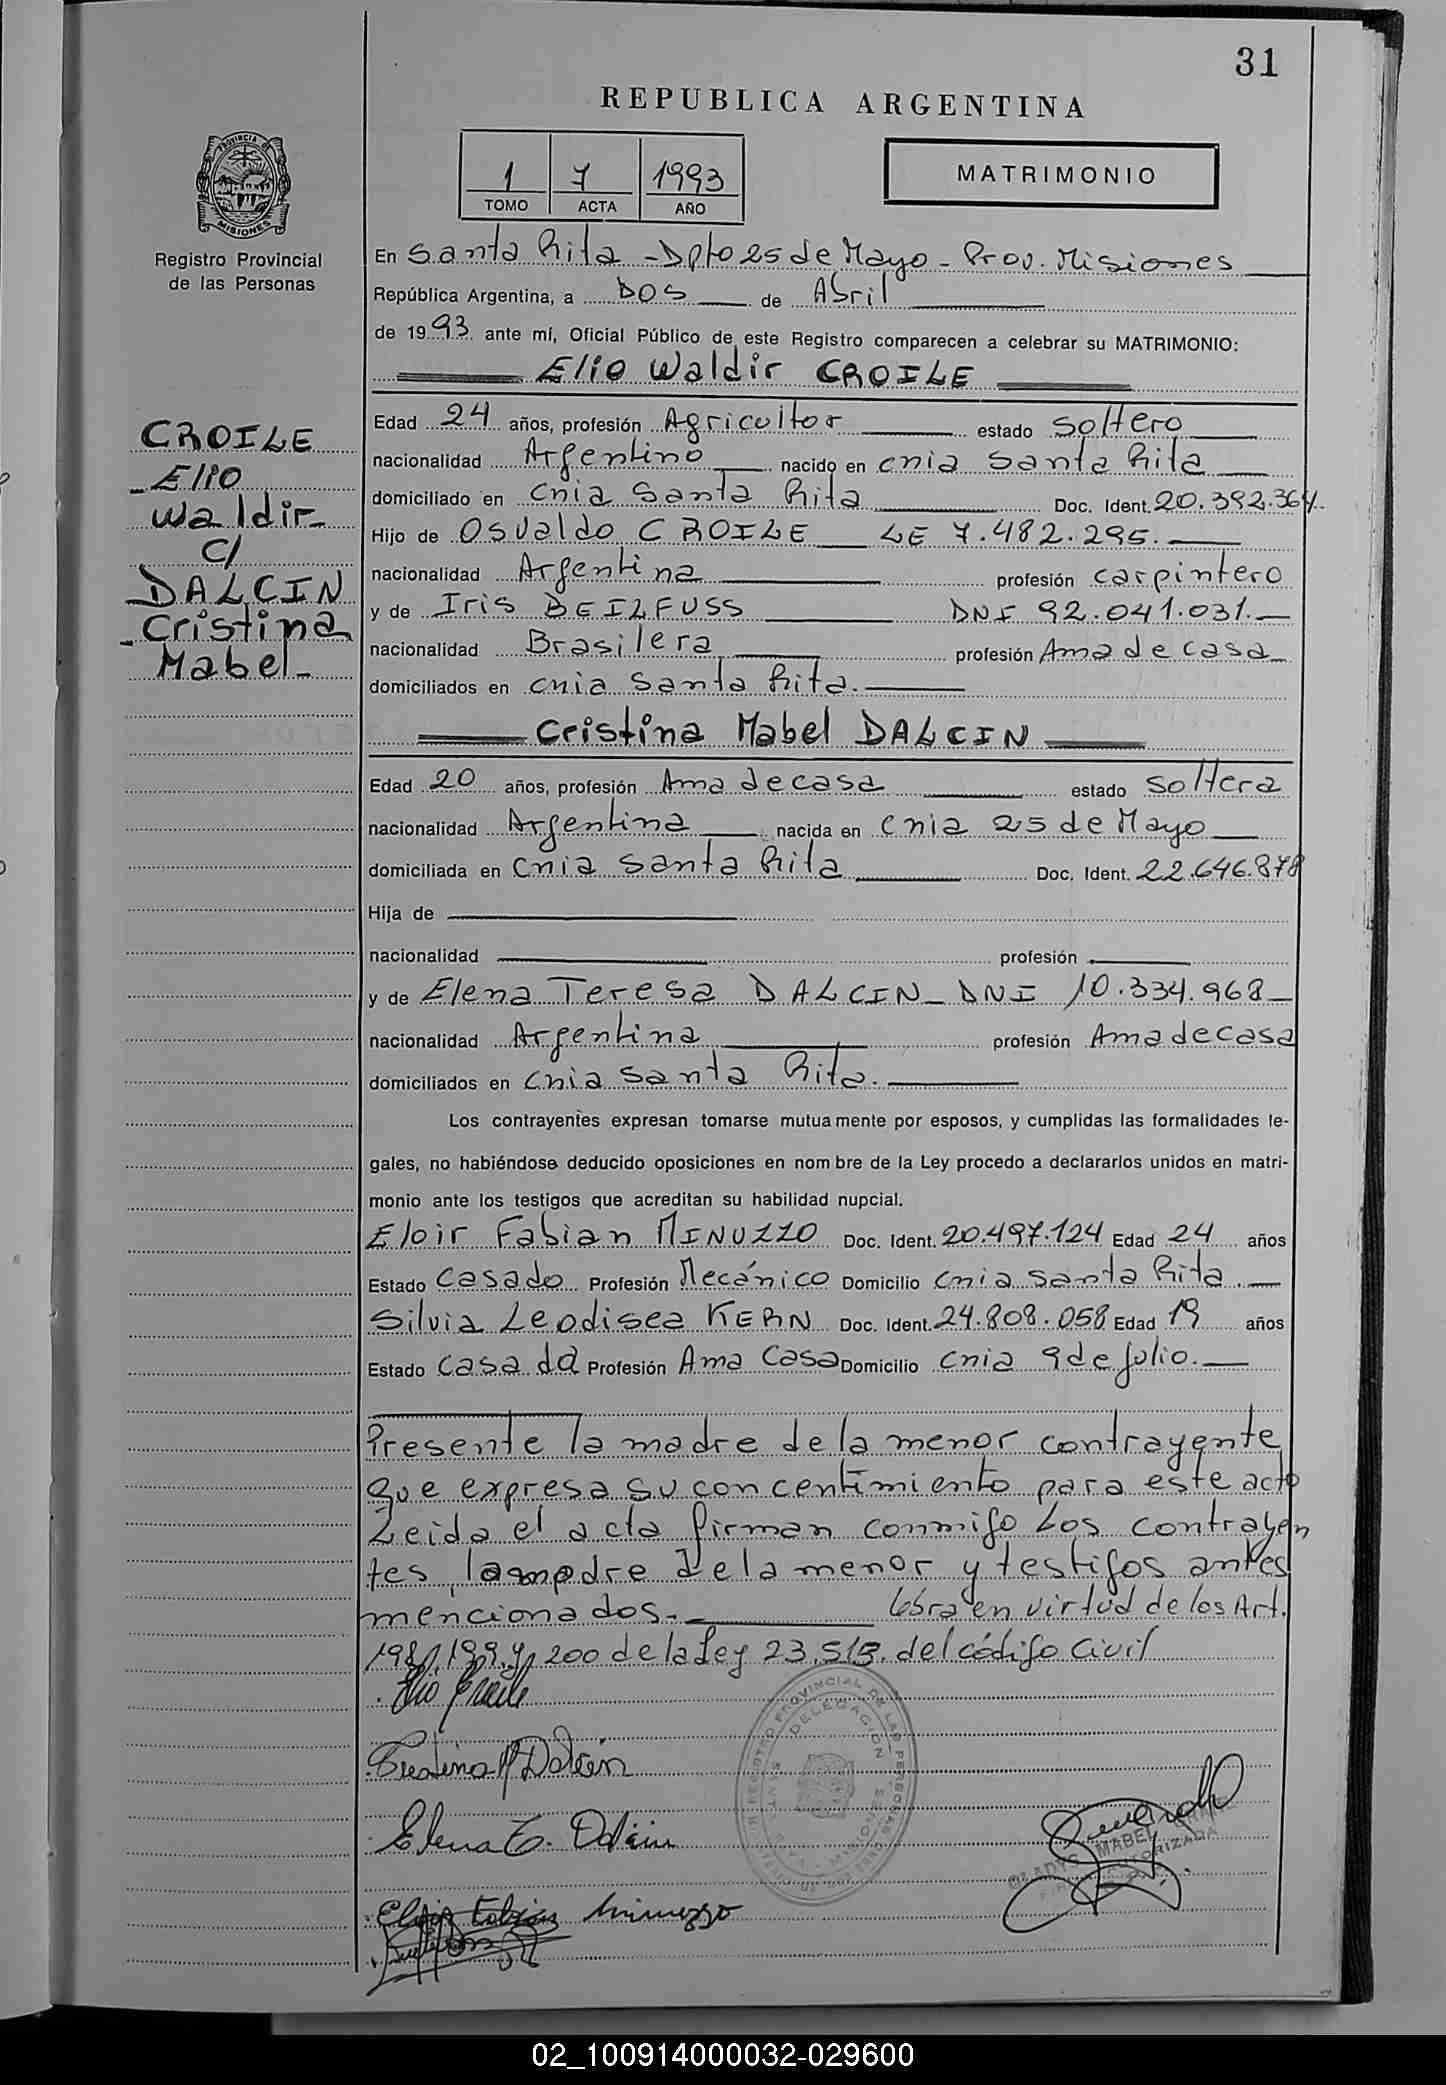 31
REPUBLICA ARGENTINA
1 7 1993
TOMO ACTA AÑO
MATRIMONIO
PROVINCIA DE
MISIONES
Registro Provincial
de las Personas
En Santa Rita - Dpto 25 de Mayo - Prov. Misiones
República Argentina, a DOS de Abril
de 1993 ante mí, Oficial Público de este Registro comparecen a celebrar su MATRIMONIO:
Elio Waldir CROILE
CROILE
Elio
Waldir
C/
DALCIN
Cristina
Mabel
Edad 24 años, profesión Agricultor estado Soltero
nacionalidad Argentino nacido en cnia Santa Rita
domiciliado en Cnia Santa Rita Doc. Ident. 20.392.364
Hijo de Osvaldo CROILE LE 7.482.295.
nacionalidad Argentina profesión carpintero
y de Iris BEILFUSS DNI 92.041.031.
nacionalidad Brasilera profesión Ama de casa
domiciliados en cnia Santa Rita.
Cristina Mabel DALCIN
Edad 20 años, profesión Ama de casa estado Soltera
nacionalidad Argentina nacida en Cnia 25 de Mayo
domiciliada en Cnia Santa Rita Doc. Ident. 22.646.878
Hija de
nacionalidad profesión
y de Elena Teresa DALCIN - DNI 10.334.968
nacionalidad Argentina profesión Ama de casa
domiciliados en Cnia Santa Rita.
Los contrayentes expresan tomarse mutuamente por esposos, y cumplidas las formalidades le-
gales, no habiéndose deducido oposiciones en nombre de la Ley procedo a declararlos unidos en matri-
monio ante los testigos que acreditan su habilidad nupcial.
Eloir Fabian MINUZZO Doc. Ident. 20.497.124 Edad 24 años
Estado Casado Profesión Mecánico Domicilio cnia Santa Rita.
Silvia Leodisea KERN Doc. Ident. 24.808.058 Edad 19 años
Estado Casada Profesión Ama Casa Domicilio Cnia 9 de Julio.
Presente la madre de la menor contrayente
que expresa su concentimiento para este acto
Leida el acta firman conmigo Los contrayen
tes, la madre de la menor y testigos antes
mencionados. Obra en virtud de los Art.
198, 199 y 200 de la Ley 23.515. del código Civil
Elio Croile
Cristina M Dalcin
Elena T. Dalcin
Eloir Fabián Minuzzo
GLADYS MABEL
FIRMA AUTORIZADA
02_100914000032-029600